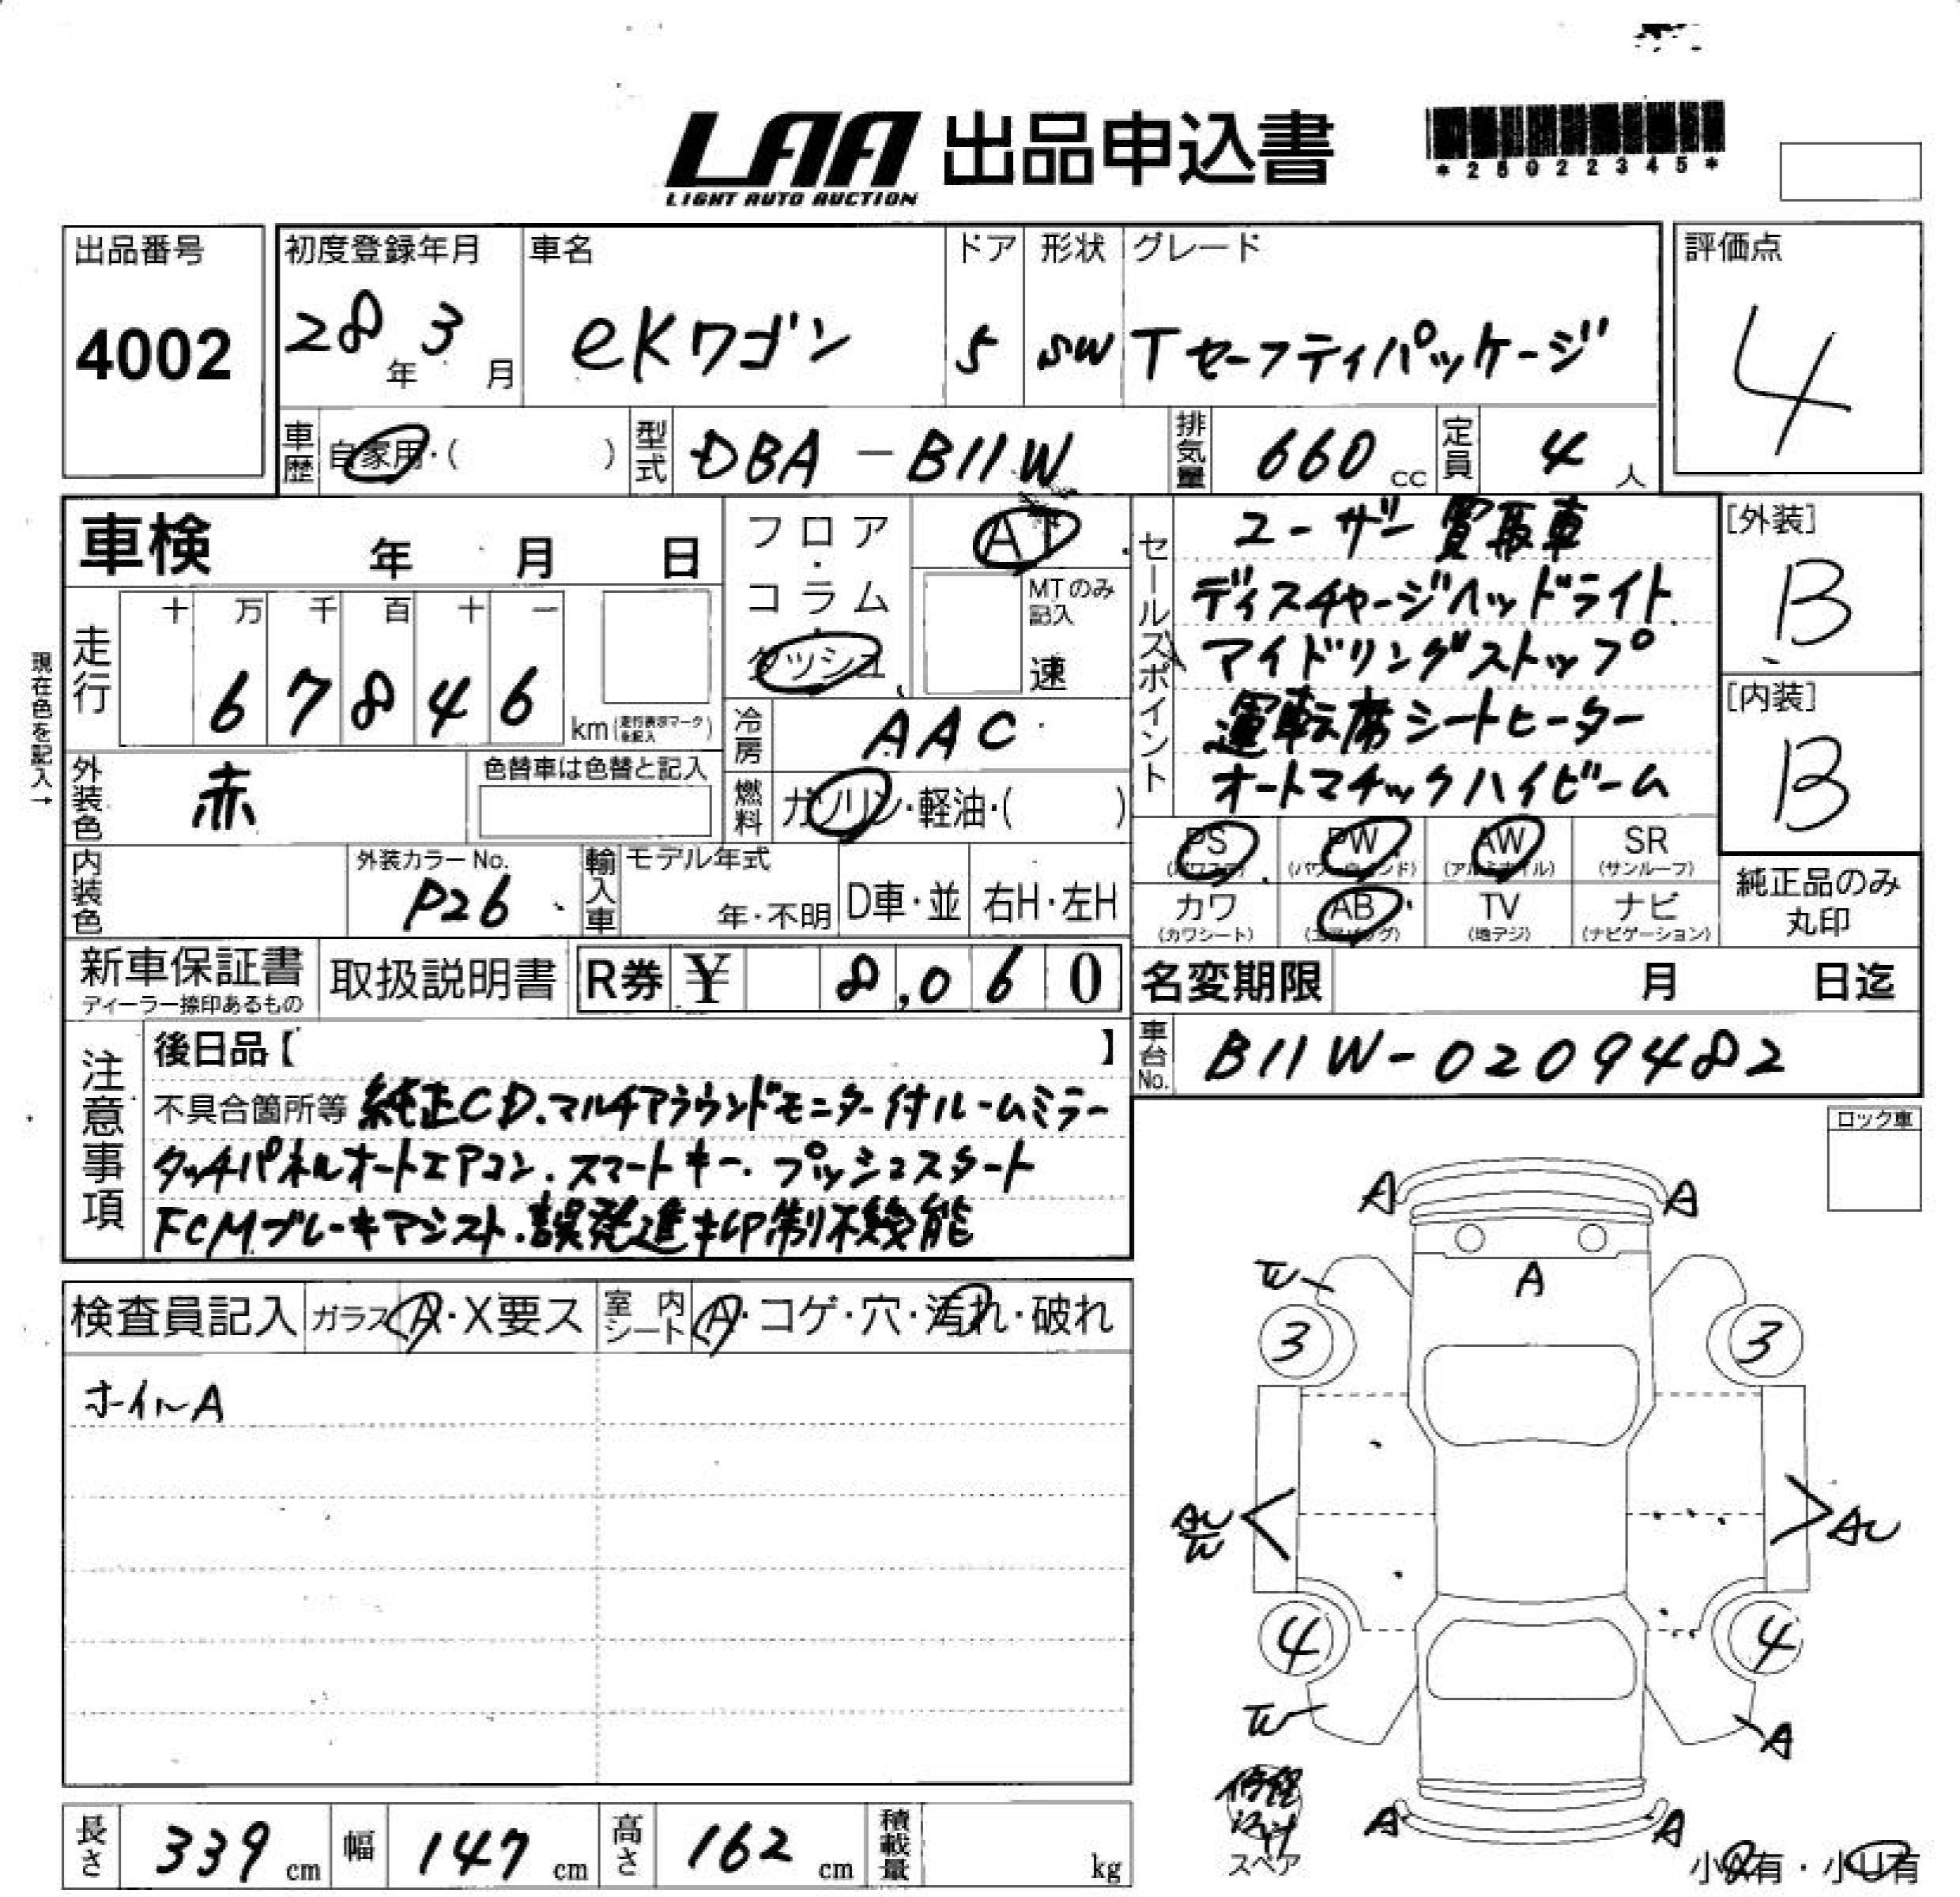 LAA 出品申込書
LIGHT AUTO AUCTION
*26022345*
出品番号
4002
初度登録年月
28年 3月
車名
eKワゴン
ドア
5
形状
SW
グレード
Tセーフティパッケージ
評価点
4
車歴 自家用・( )
型式 DBA-B11W
排気量 660 cc
定員 4 人
車検 年 月 日
フロア・コラム・ダッシュ
AT
MTのみ記入
速
セールスポイント
ユーザー買取車
ディスチャージヘッドライト
アイドリングストップ
運転席シートヒーター
オートマチックハイビーム
[外装]
B
[内装]
B
現在色を記入→
走行
十 万 千 百 十 一
6 7 8 4 6
km(走行表示マークを記入)
冷房 AAC
燃料 ガソリン・軽油・( )
外装色 赤
色替車は色替と記入
内装色
外装カラーNo.
P26
輸入車
モデル年式
年・不明
D車・並
右H・左H
PS
(パワステ)
PW
(パワーウィンド)
AW
(アルミホイル)
SR
(サンルーフ)
カワ
(カワシート)
AB
(エアバッグ)
TV
(地デジ)
ナビ
(ナビゲーション)
純正品のみ
丸印
新車保証書
ディーラー捺印あるもの
取扱説明書
R券 ¥ 8,060
名変期限 月 日迄
車台No. B11W-0209482
注意事項
後日品【 】
不具合箇所等 純正CD.マルチアラウンドモニター付ルームミラー
タッチパネルオートエアコン.スマートキー.プッシュスタート
FCMブレーキアシスト.誤発進抑制機能
ロック車
検査員記入
ガラス A・X要ス
室内シート A・コゲ・穴・汚れ・破れ
ホイルA
A A
A
W
3 3
AU
W
AU
4 4
W
A
A A
修理
キット
スペア
小A有・小U有
長さ 339 cm
幅 147 cm
高さ 162 cm
積載量 kg